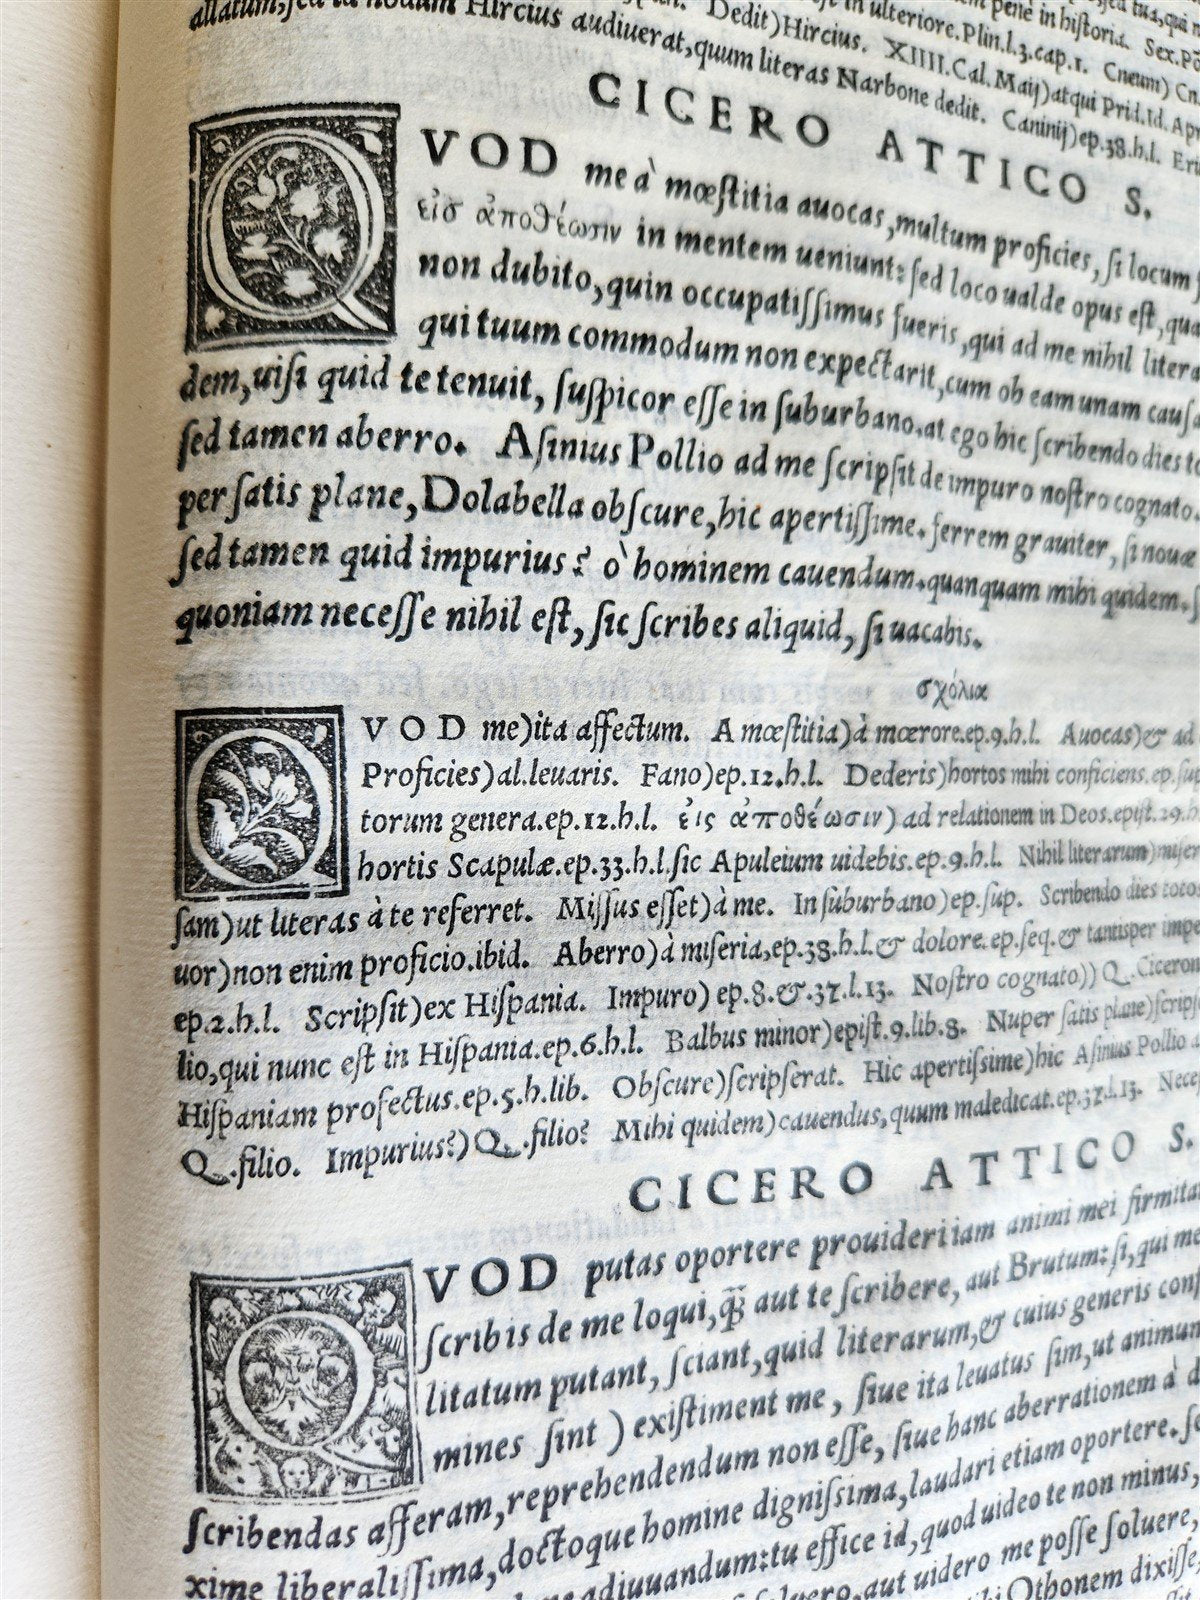 allatum, sed ta nodum Hircius audiuerat, quum literas Narbone dedit. Caninij) ep.38.h.l.
Dedit) Hircius. XIIII. Cal. Maij) atqui Prid. Id.
in ulteriore. Plin. l.3. cap.1. Cneum) Cn.
pene in historia. Sex.
CICERO ATTICO S.
QVOD me à mœstitia auocas, multum proficies, si locum
εἰσ ἀποθέωσιν in mentem ueniunt: sed loco ualde opus est,
non dubito, quin occupatissimus fueris, qui ad me nihil litera
qui tuum commodum non expectarit, cum ob eam unam causa
dem, uisi quid te tenuit, suspicor esse in suburbano. at ego hic scribendo dies to
sed tamen aberro. Asinius Pollio ad me scripsit de impuro nostro cognato.
per satis plane, Dolabella obscure, hic apertissime. ferrem grauiter, si nouæ
sed tamen quid impurius? ò hominem cauendum. quanquam mihi quidem.
quoniam necesse nihil est, sic scribes aliquid, si uacabis.
σχόλια
QVOD me) ita affectum. A mœstitia) à mœrore. ep.9.h.l. Auocas) & ad
Proficies) al. leuaris. Fano) ep.12.h.l. Dederis) hortos mihi conficiens. ep. sup
torum genera. ep.12.h.l. εἰς ἀποθέωσιν) ad relationem in Deos. epist.29.h
hortis Scapulæ. ep.33.h.l. sic Apuleium uidebis. ep.9.h.l. Nihil literarum) miser
sam) ut literas à te referret. Missus esset) à me. In suburbano) ep. sup. Scribendo dies totos
uor) non enim proficio. ibid. Aberro) à miseria, ep.38.h.l. & dolore. ep. seq. & tantisper impe
ep.2.h.l. Scripsit) ex Hispania. Impuro) ep.8.&.37.l.13. Nostro cognato)) Q. Ciceron
lio, qui nunc est in Hispania. ep.6.h.l. Balbus minor) epist.9.lib.8. Nuper satis plane) scripse
Hispaniam profectus. ep.5.h.lib. Obscure) scripserat. Hic apertissime) hic Asinius Pollio
Q. filio. Impurius?) Q. filio? Mihi quidem) cauendus, quum maledicat. ep.37.l.13. Nece
CICERO ATTICO S.
QVOD putas oportere prouideri iam animi mei firmita
scribis de me loqui, qꝫ aut te scribere, aut Brutum: si, qui me
litatum putant, sciant, quid literarum, & cuius generis conf
mines sint) existiment me, siue ita leuatus sim, ut animum
scribendas afferam, reprehendendum non esse, siue hanc aberrationem à
xime liberalissima, doctoque homine dignissima, laudari etiam oportere.
adiuuandum: tu effice id, quod uideo te non minus,
aut uidero me posse soluere,
Othonem dixisse,